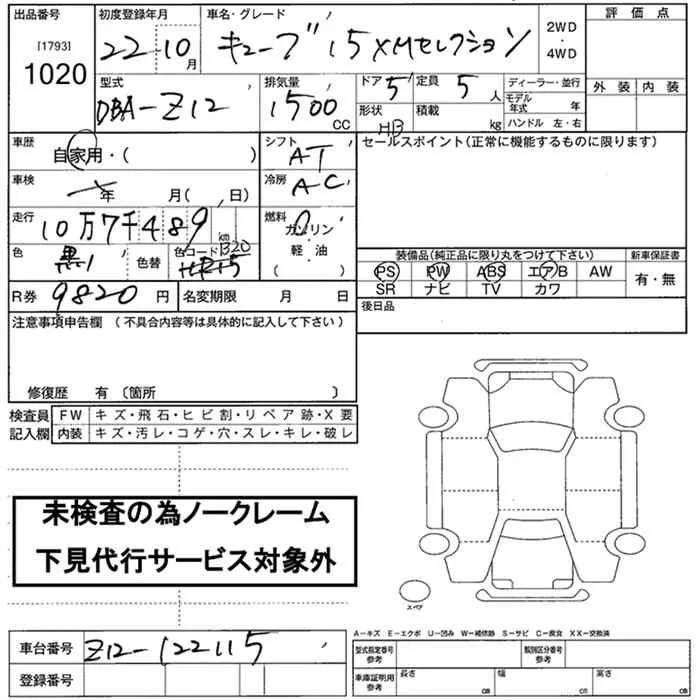 出品番号 初度登録年月 車名・グレード 2WD・4WD 評価点
[1793]
1020 22-10月 キューブ 15XMセレクション
外装 内装
型式 排気量 ドア 定員 ディーラー・並行
DBA-Z12 1500 CC 5 5人 モデル年式 年
形状 HB 積載 kg ハンドル 左・右
車歴 自家用・( ) シフト AT セールスポイント(正常に機能するものに限ります)
車検 年 月( , 日) 冷房 AC
走行 10万7千489 km 燃料 ガソリン・軽油 ( )
色 黒 色替 色コード 1320
装備品(純正品に限り丸をつけて下さい) 新車保証書
PS PW ABS エアB AW 有・無
SR ナビ TV カワ
R券 9820円 名変期限 月 日 後日品
注意事項申告欄 (不具合内容等は具体的に記入して下さい)
修復歴 有〔箇所 〕
検査員記入欄 FW キズ・飛石・ヒビ割・リペア跡・X要
内装 キズ・汚レ・コゲ・穴・スレ・キレ・破レ
未検査の為ノークレーム
下見代行サービス対象外
スペア
A-キズ E-エクボ U-凹み W-補修跡 S-サビ C-腐食 XX-交換済
車台番号 Z12-122115
登録番号
型式指定番号 参考 類別区分番号 参考
車庫証明用 参考 長さ cm 幅 cm 高さ cm